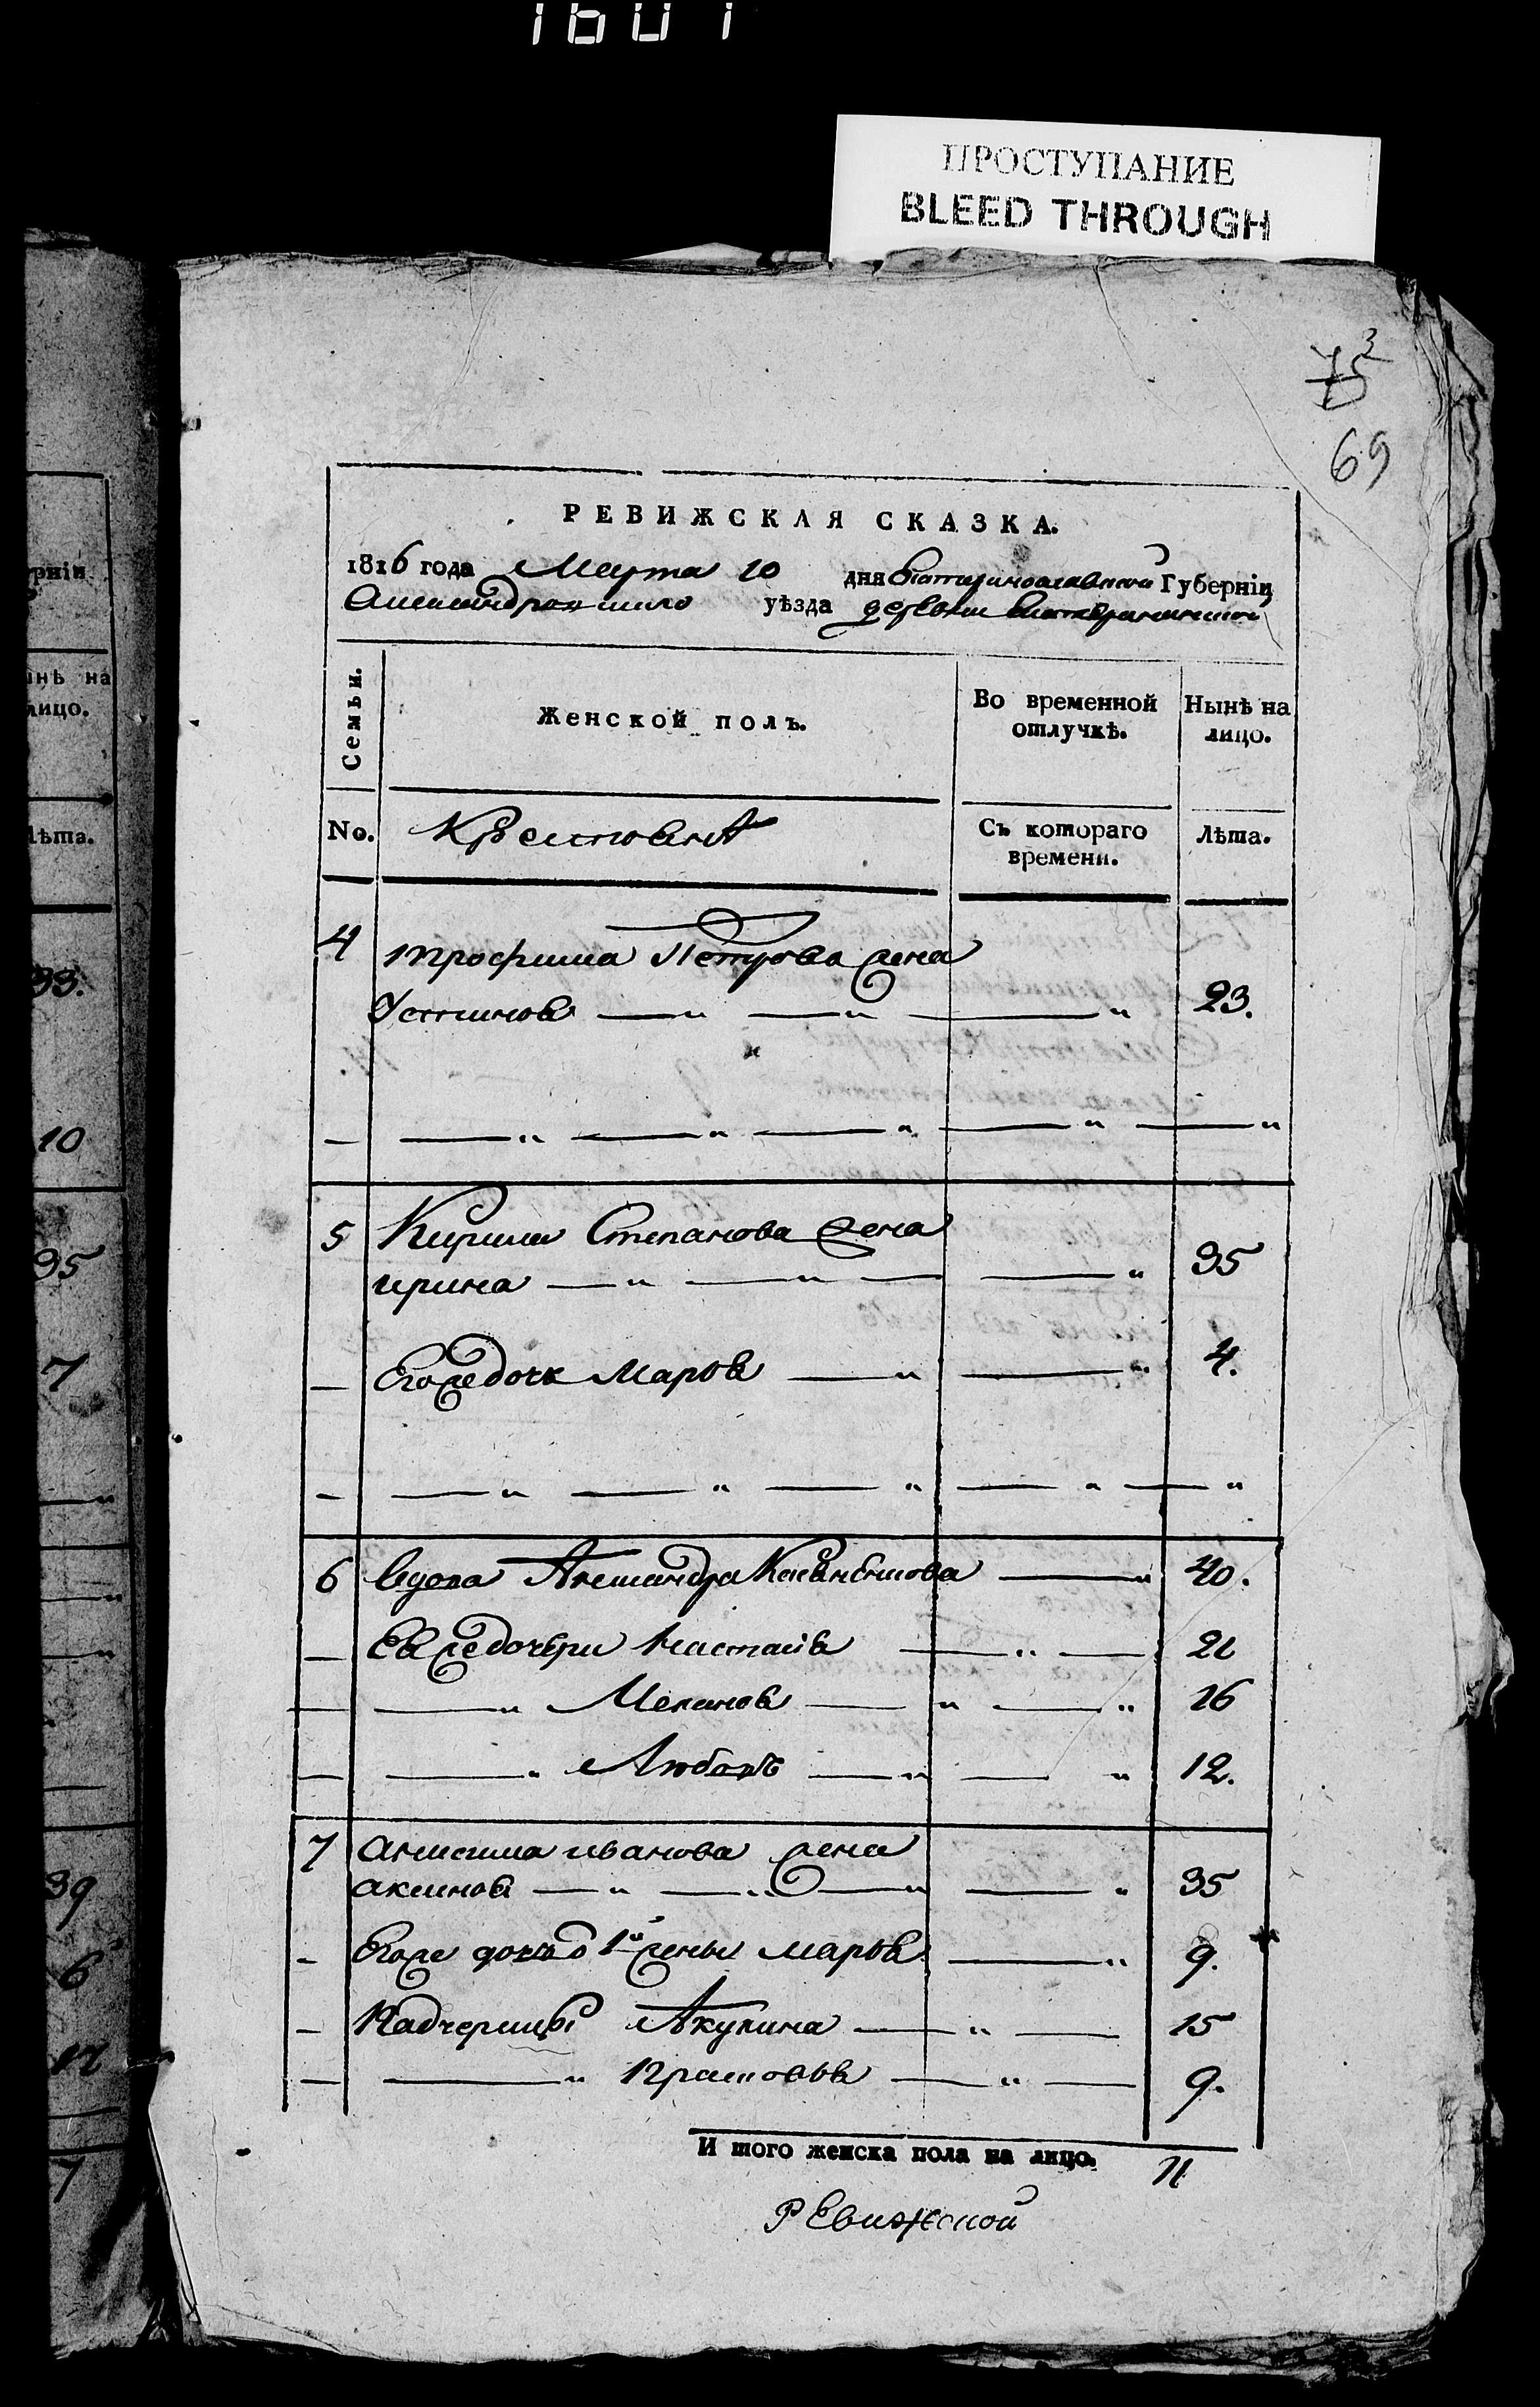 1601
ПРОСТУПАНИЕ
BLEED THROUGH
75 3
69
РЕВИЖСКАЯ СКАЗКА.
1816 года Марта 10 дня Екатеринославской Губерніи
Александровского уѣзда деревни Екатериновской
Семьи. Женской полъ. Во временной отлучкѣ. Нынѣ на лицо.
No. Съ котораго времени. Лѣта.
4 трофима Петрова жена
Устинья — " — " — " 23.
— — " — " — " — " — "
5 Кирила Степанова жена
ирина — " — " — — " 35
— Егоже дочь Марья — " — " 4.
— — " — " — " — " — "
6 вдова Александра — " 40.
— Ея же дочери Настасья — " — 21
— — " Меланья — " — " 16
— — " Любовь — " — " 12.
7 анисима иванова жена
аксинья — " — " — " — " 35
— Егоже дочь от 1й жены марья — " 9.
— Падчерицы Акулина — " — 15
— — " Прасковья — " — 9.
И того женска пола на лицо. 11
Ревижской
рніи
інѣ на
лицо.
лѣта.
33.
10
35
7
39
6
12
7